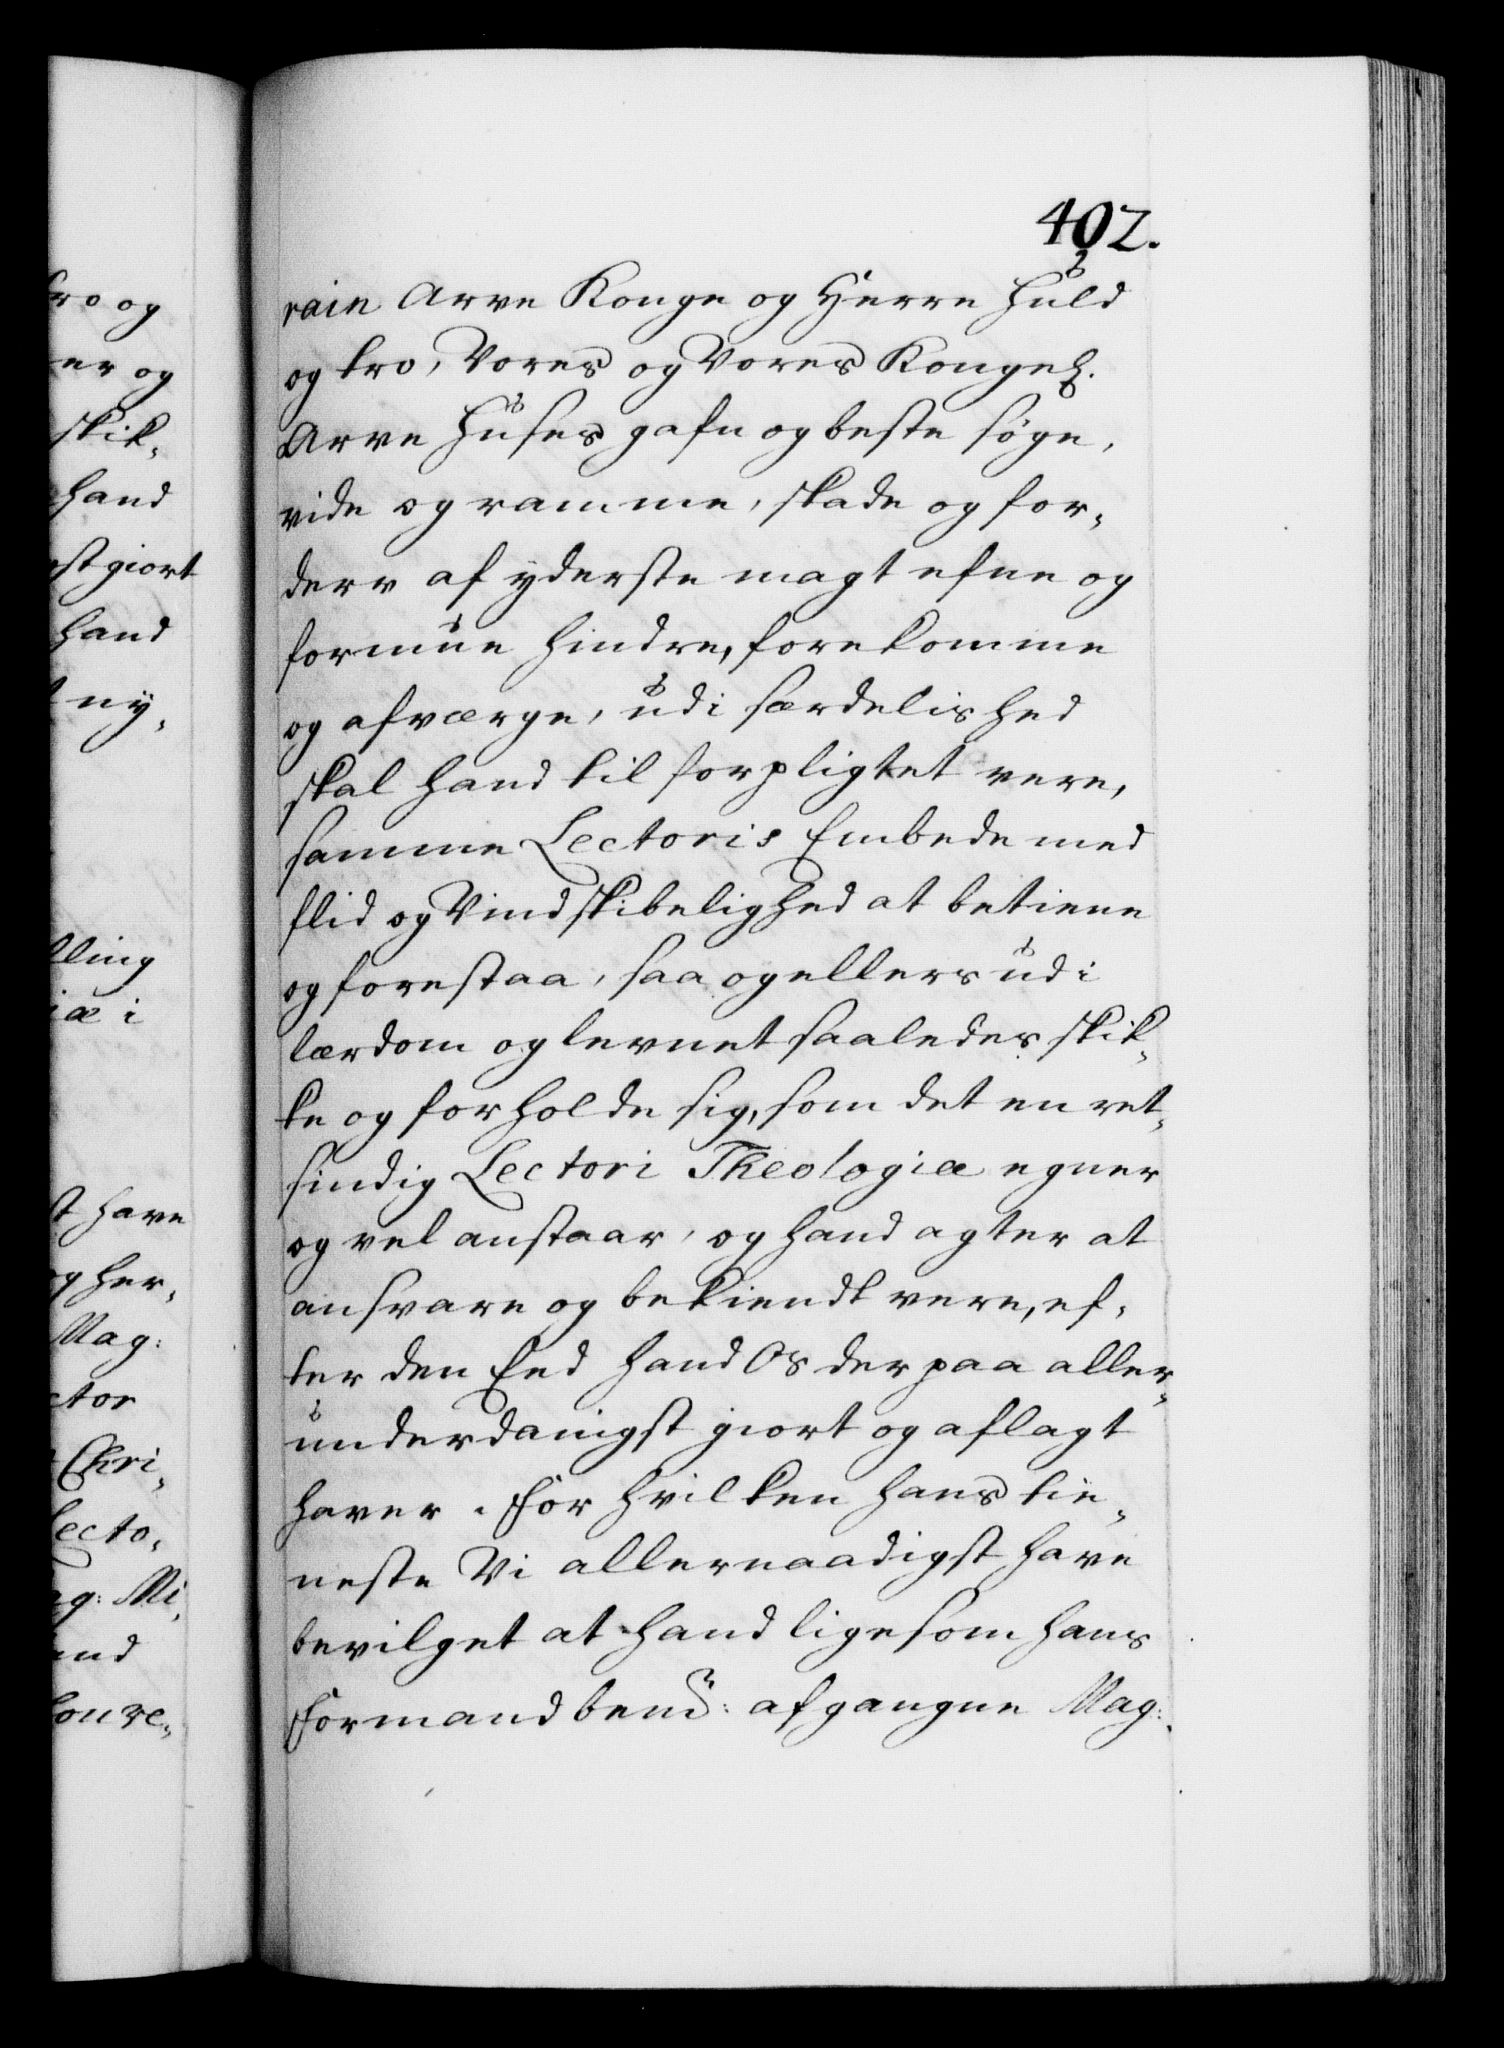 402.
rain Arve Konge og Herre Huld
og troe, Vores og Vores Kongel.
Arve Huses gafn og beste søge,
vide og ramme, skade og for-
derv af yderste magt efne og
formue hindre, forekomme
og afværge, udi særdelished
skal hand til forpligtet vere,
samme Lectoris Embede med
flid og Vindskibelighed at betiene
og forestaa, saa og ellers udi
lærdom og levnet saaledes skik-
ke og forholde sig, som det en ret-
sindig Lectori Theologiæ egner
og vel anstaar, og hand agter at
ansvare og bekiendt vere, ef-
ter den Eed hand Os derpaa aller-
underdanigst giort og aflagt
haver. For hvilken hans tie-
neste Vi allernaadigst have
bevilget at hand ligesom hans
Formand bem: afgangne Mag: